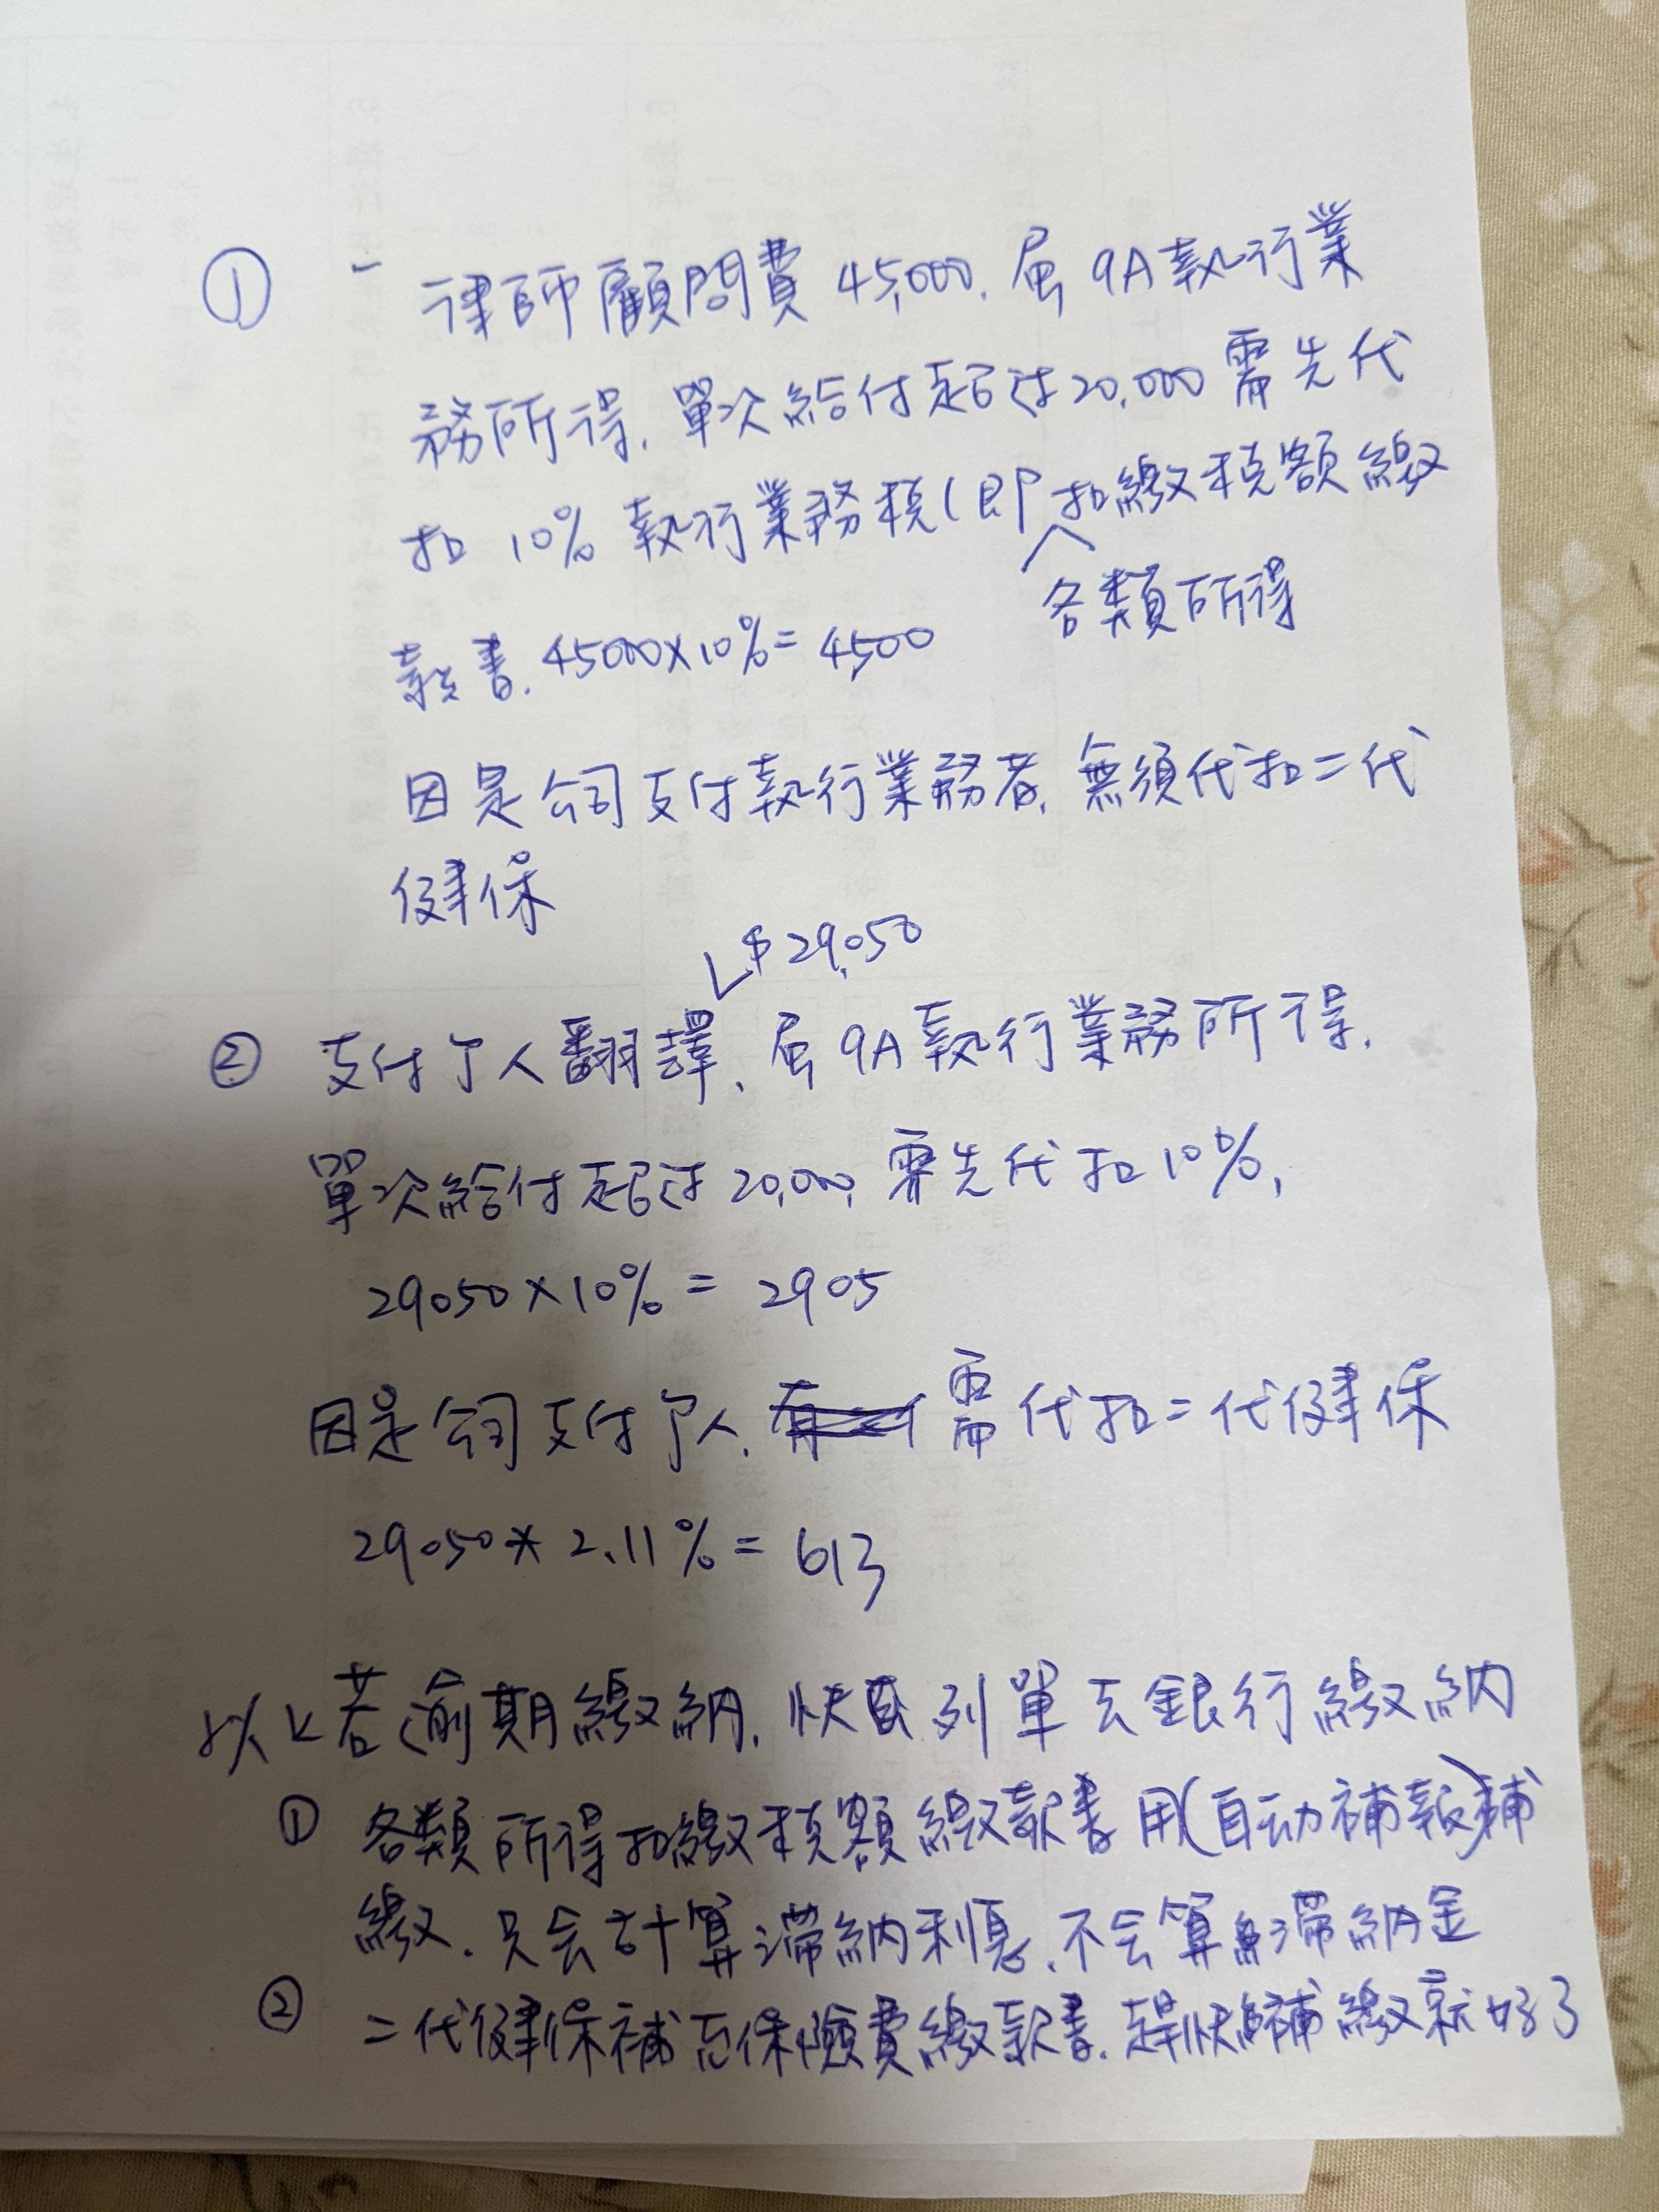 ① 律師顧問費 45,000. 屬 9A 執行業
務所得. 單次給付超过 20,000 需先代
扣 10% 執行業務稅 (即 扣繳稅額繳
各類所得
款書. 45000×10% = 4500
因是公司支付執行業務者. 無須代扣二代
健保
$29,050
② 支付个人翻譯、屬 9A 執行業務所得.
單次給付超过 20,000, 需先代扣 10%,
29050 × 10% = 2905
因是公司支付个人. 需代扣二代健保
29050 * 2.11% = 613
以上若逾期繳納. 快 列單去銀行繳納
① 各類所得扣繳稅額繳款書 用(自动補報)補
繳. 只会計算滯納利息. 不会算 滯納金
② 二代健保補充保險費繳款書. 趕快 補繳就好了